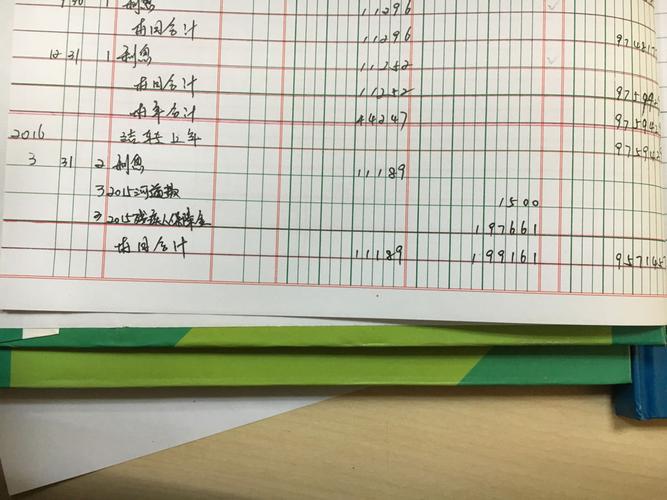 9 30 利息 11296
本月合计 11296 97481
12 31 1 利息 11252
本月合计 11252
本年合计 44247
2016 结转上年
3 31 2 利息 11189
3 2015河道款 1500
3 2015残疾人保障金 197661
本月合计 11189 199161